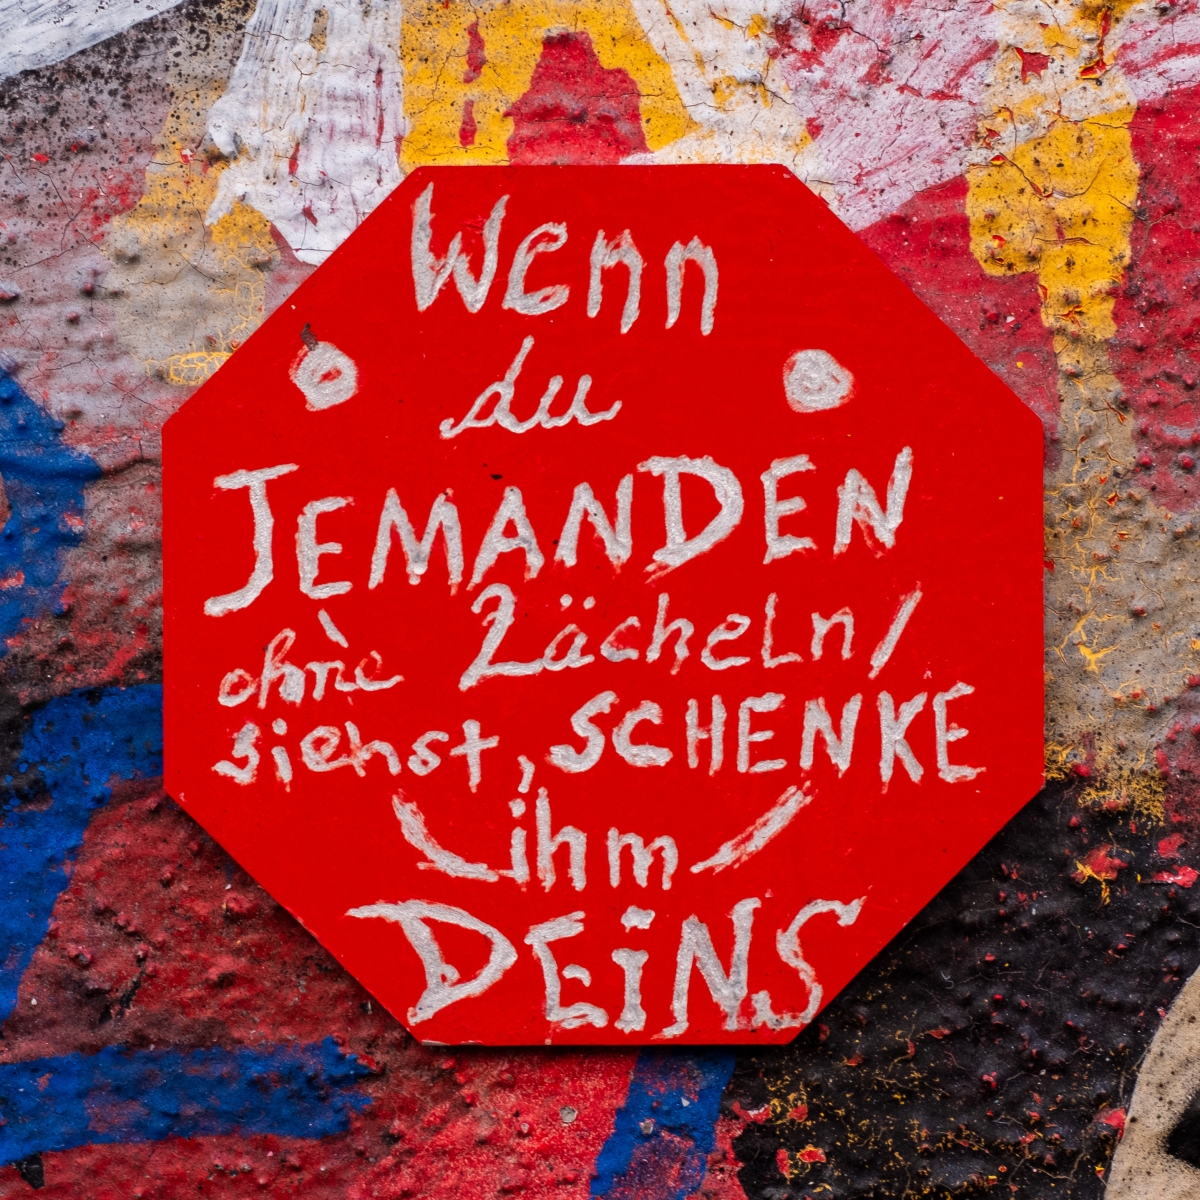 Wenn
du
JEMANDEN
ohne Lächeln/
siehst, SCHENKE
ihm
DEiNS